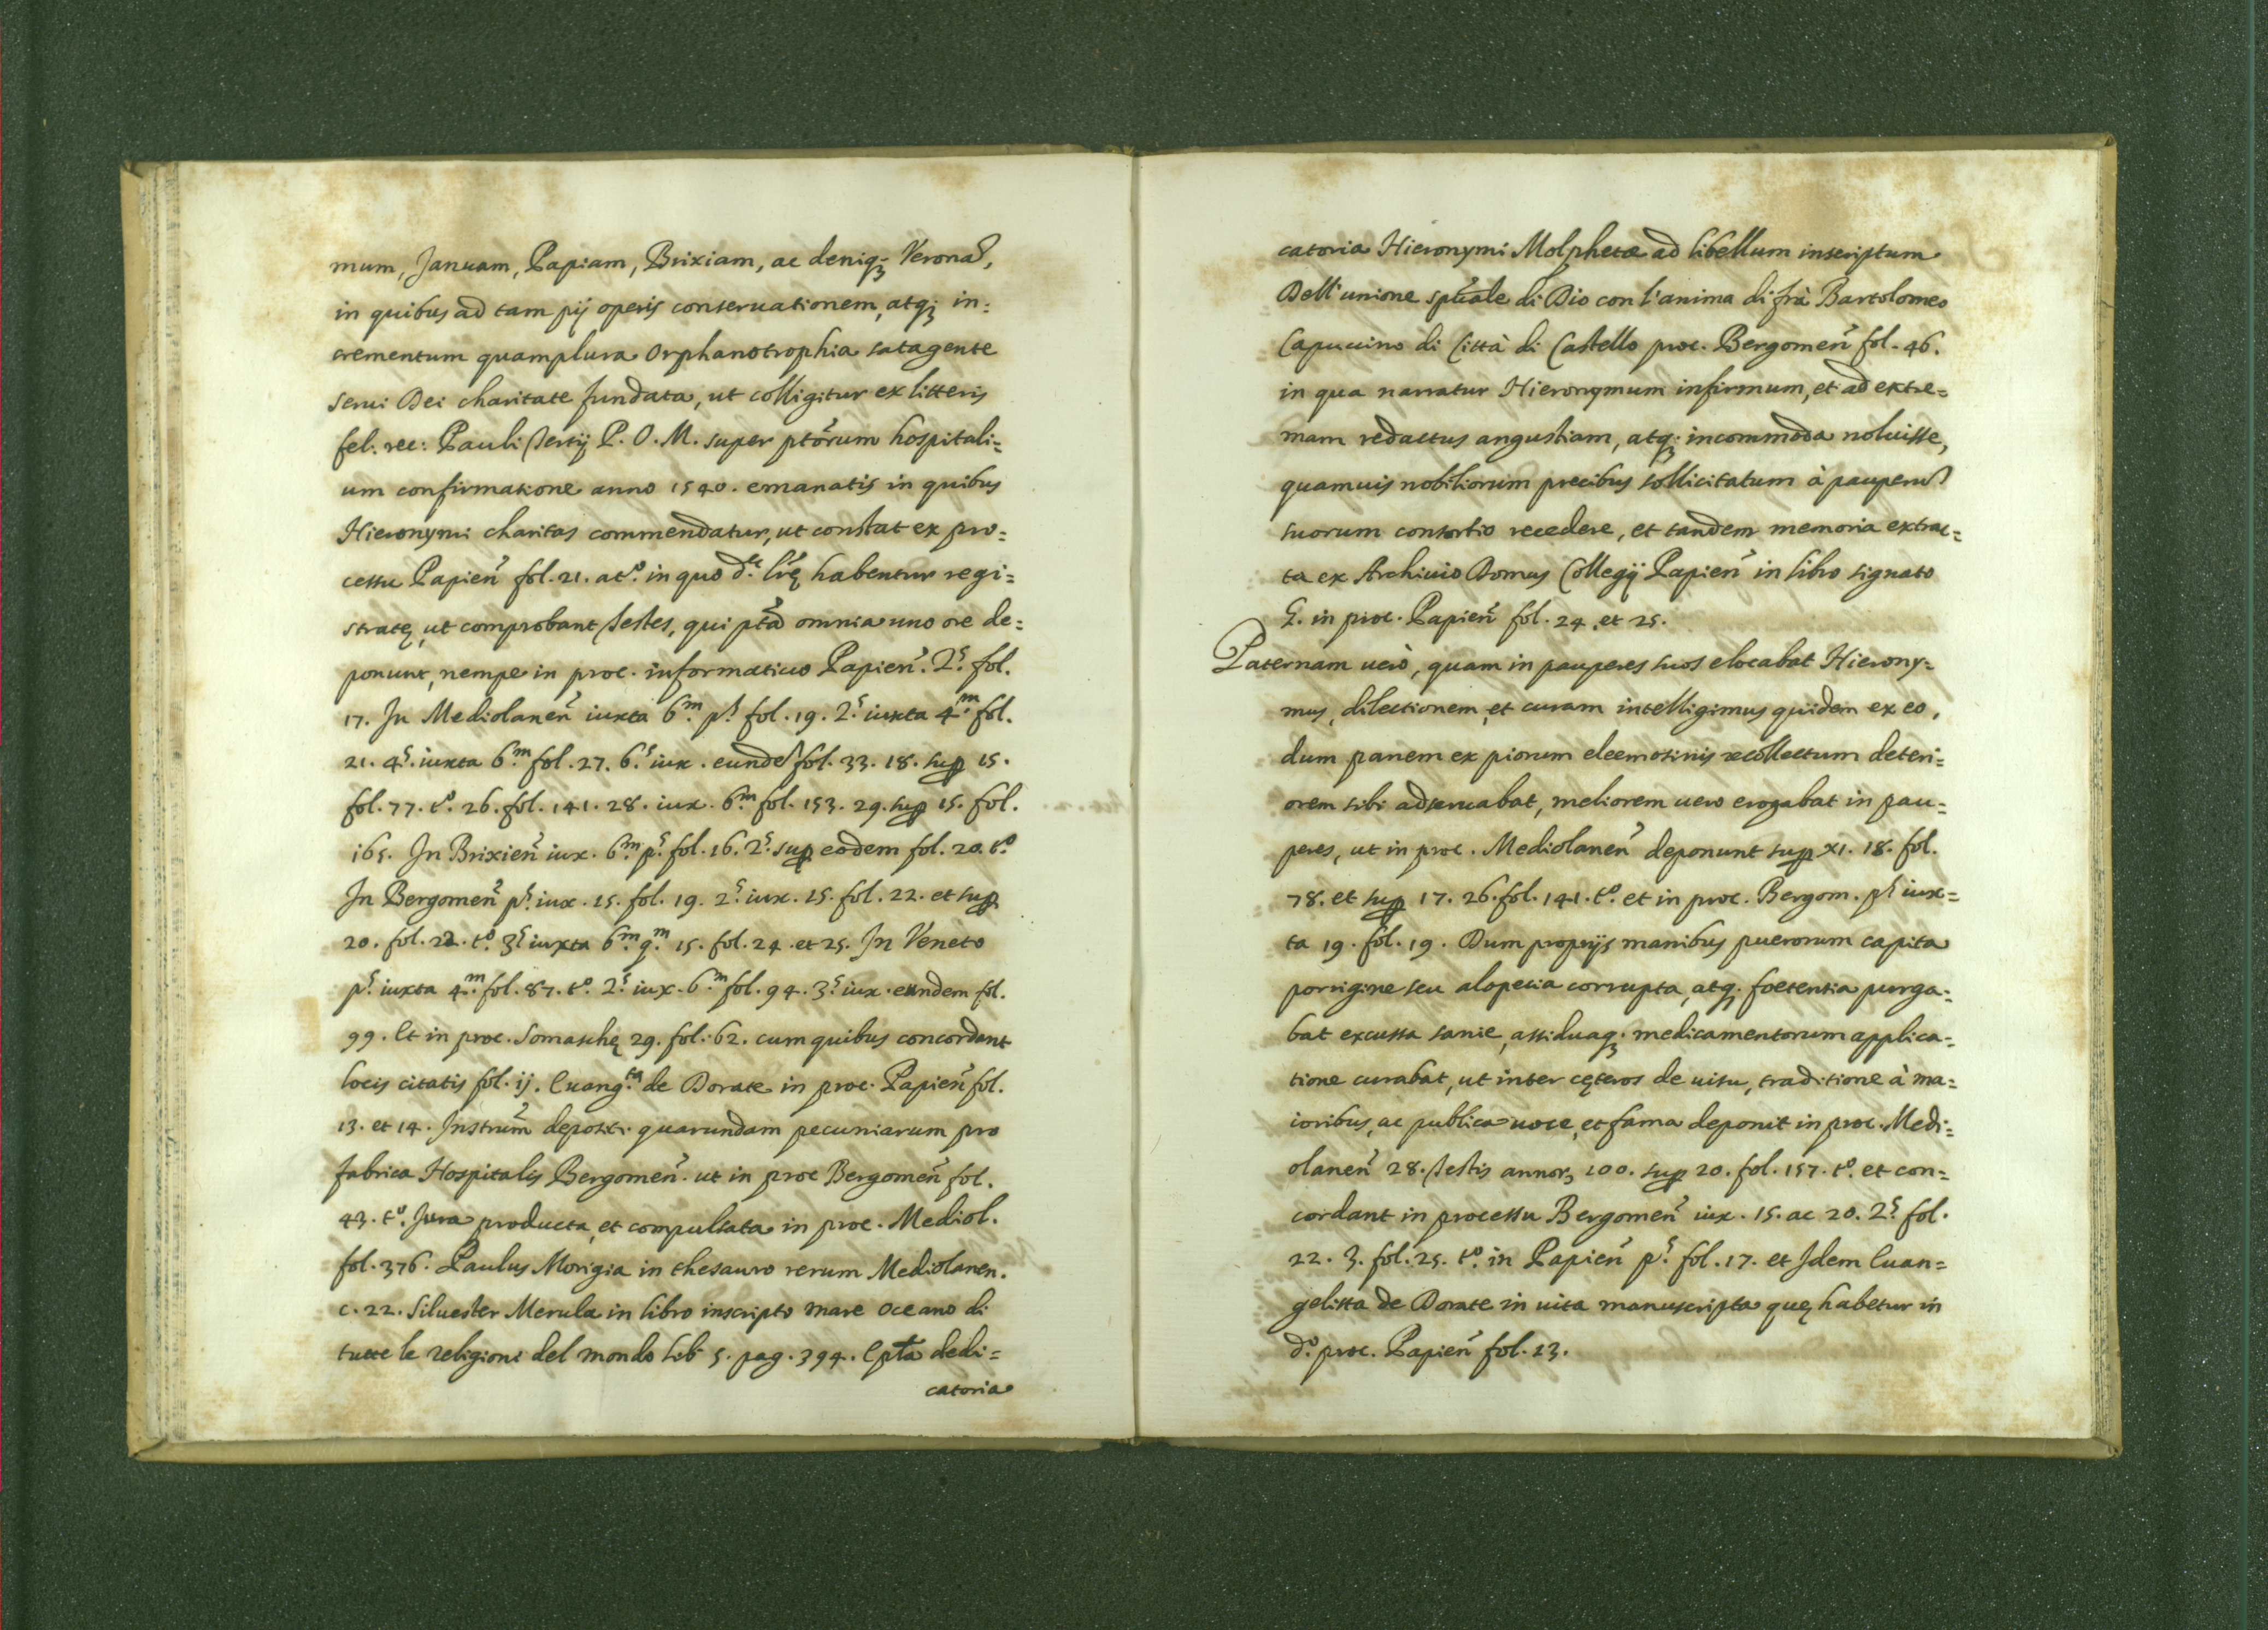 mum, Januam, Papiam, Brixiam, ac deniq; Veronã,
in quibus ad tam pij operis conseruationem, atq; in=
crementum quamplura Orphanotrophia satagente
serui Dei charitate fundata, ut colligitur ex litteris
fel: rec: Pauli Tertij P. O. M. super ptõrum hospitali=
um confirmatione anno 1540. emanatis in quibus
Hieronymi charitas commendatur, ut constat ex pro=
cessu Papien̄ fol. 21. at.º in quo d.ᵉ lr̃ę habentur regi=
stratę, ut comprobant Testes, qui ptã omnia uno ore de=
ponunt, nempe in proc. informatiuo Papien̄. 2.ˢ fol.
17. In Mediolanen̄ iuxta 6.ᵐ p.ˢ fol. 19. 2.ˢ iuxta 4.ᵐ fol.
21. 4.ˢ iuxta 6.ᵐ fol. 27. 6.ˢ iux. eundẽ fol. 33. 18. sup 15.
fol. 77. t.º 26. fol. 141. 28. iux. 6.ᵐ fol. 153. 29. sup 15. fol.
165. In Brixien̄ iux. 6.ᵐ p.ˢ fol. 16. 2.ˢ sup eodem fol. 20. t.º
In Bergomen̄ p.ˢ iux. 15. fol. 19. 2.ˢ iux. 15. fol. 22. et sup
20. fol. 22. t.º 3.ˢ iuxta 6.ᵐ 9.ᵐ 15. fol. 24. et 25. In Veneto
p.ˢ iuxta 4.ᵐ fol. 87. t.º 2.ˢ iux. 6.ᵐ fol. 94. 3.ˢ iux. eundem fol.
99. Et in proc. Somaschę 29. fol. 62. cum quibus concordant
locis citatis fol. ij. Euang.ᵗᵃ de Dorate in proc. Papien̄ fol.
13. et 14. Instrum̄ depositi quarundam pecuniarum pro
fabrica Hospitalis Bergomen̄. ut in proc Bergomen̄ fol.
43. t.º Jura producta, et compulsata in proc. Mediol.
fol. 376. Paulus Morigia in thesauro rerum Mediolanen.
c. 22. Siluester Merula in libro inscripto mare Oceano di
tutte le religioni del mondo lib 5. pag. 394. Epta dedi=
catoria
catoria Hieronymi Molphetæ ad libellum inscriptum
Dell'unione spũale di Dio con l'anima di frà Bartolomeo
Capuccino di Città di Castello proc. Bergomen̄ fol. 46.
in qua narratur Hieronymum infirmum, et ad extre=
mam redactus angustiam, atq; incommoda noluisse,
quamuis nobiliorum precibus sollicitatum à pauperũ
suorum consortio recedere, et tandem memoria extrac=
ta ex Archiuio Domus Collegij Papien̄ in libro signato
G. in proc. Papien̄ fol. 24. et 25.
Paternam uerò, quam in pauperes suos elocabat Hierony=
mus, dilectionem, et curam intelligimus quidem ex eo,
dum panem ex piorum eleemosinis recollectum deteri=
orem sibi adseruabat, meliorem uero erogabat in pau=
peres, ut in proc. Mediolanen̄ deponunt sup XI. 18. fol.
78. et sup 17. 26. fol. 141. t.º et in proc. Bergom. p.ˢ iux=
ta 19. fol. 19. Dum proprijs manibus puerorum capita
porrigine seu alopecia corrupta, atq; foetentia purga=
bat excussa sanie, assiduaq; medicamentorum applica=
tione curabat, ut inter cęteros de uisu, traditione à ma=
ioribus, ac publica uoce, et fama deponit in proc. Medi=
olanen̄ 28. Testis annoꝝ 100. sup 20. fol. 157. t.º et con=
cordant in processu Bergomen̄ iux. 15. ac 20. 2.ˢ fol.
22. 3. fol. 25. t.º in Papien̄ p.ˢ fol. 17. et Idem Euan=
gelista de Dorate in uita manuscripta quę habetur in
d.º proc. Papien̄ fol. 13.